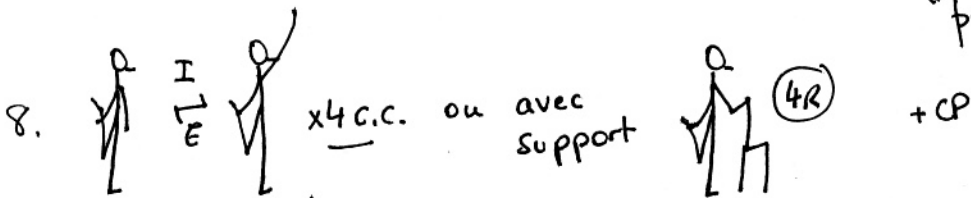 8. I E x4 c.c. ou avec support 4R + CP
p